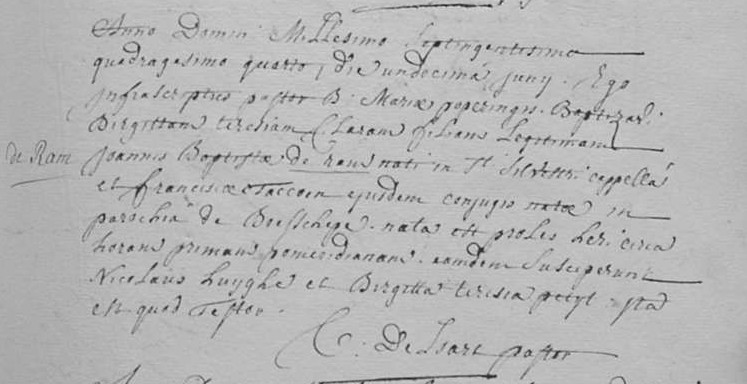 Anno Domini Millesimo Septingentesimo
quadragesimo quarto, die undecima Junij. Ego
infrascriptus pastor B. Mariæ poperingis. Baptizavi
Birgittam teresiam Claram filiam Legitimam
de Ram Joannis Baptistæ de ram nati in St Silvestri cappellâ
et franciscæ ejusdem conjugis natæ in
parochiâ de Boesschepe. nata est proles heri circa
horam primam pomeridianam. eamdem susceperunt
Nicolaüs huyghe et Birgitta teresia petyt ita
est quod Testor.
C: De pastor